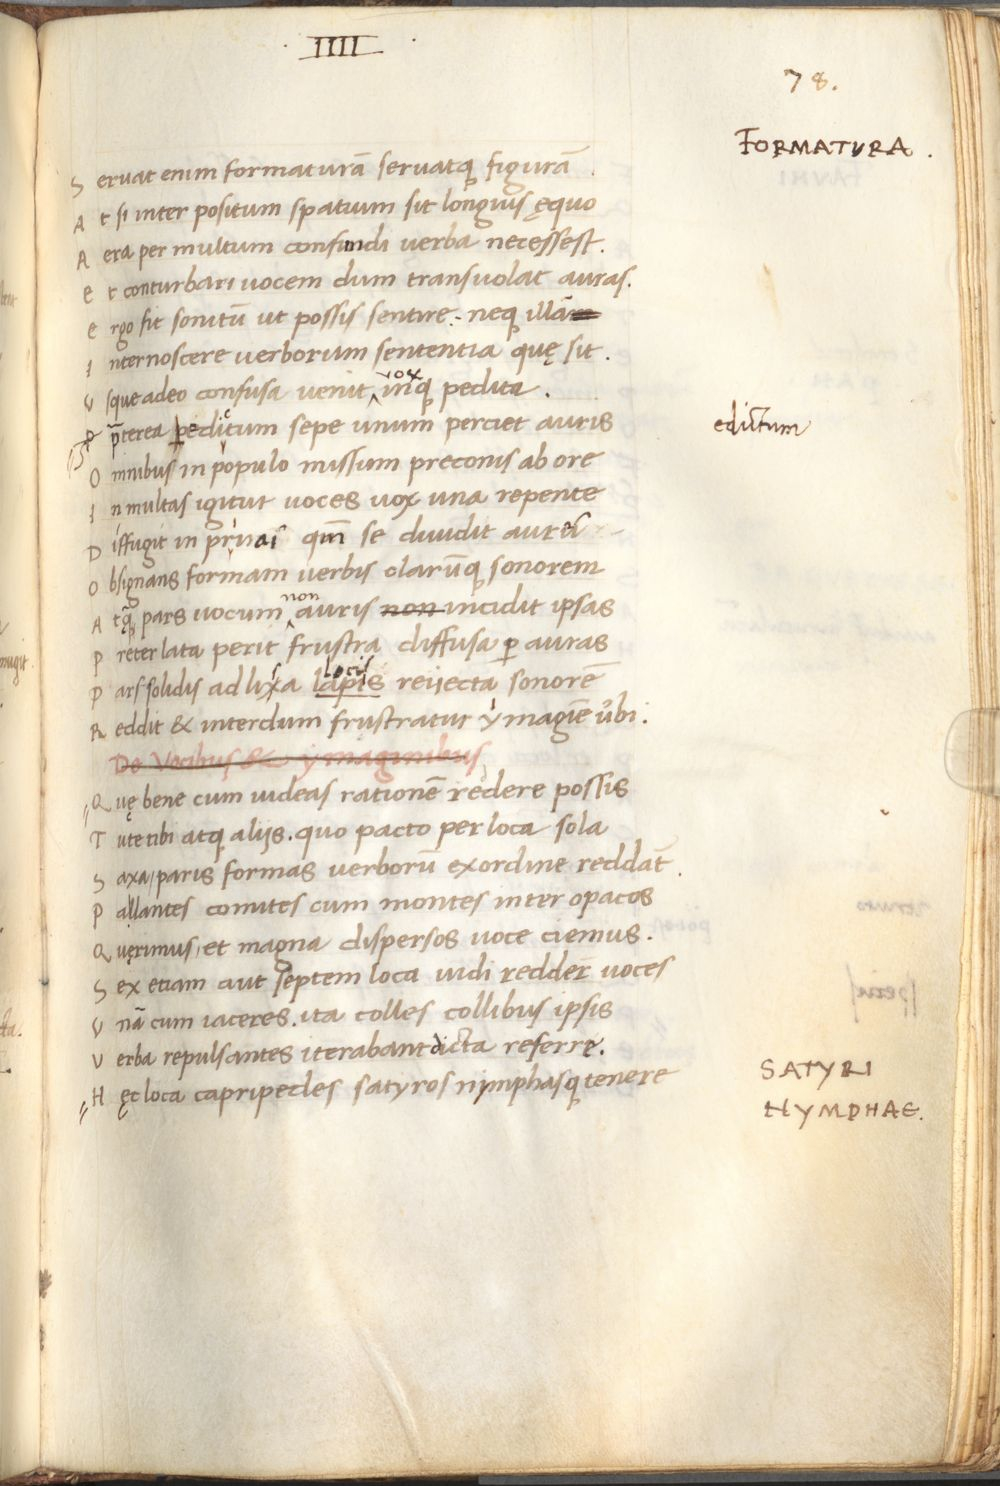 IIII
78.
FORMATVRA.
S eruat enim formaturā seruatq; figurā.
A t si inter positum spatium sit longius ęquo
A era per multum confundi uerba necessest.
E t conturbari uocem dum transuolat auras.
E rgo fit sonitū ut possis sentire. neq; illā
I nternoscere uerborum sententia quę sit.
V squeadeo confusa uenit vox inq; pedita.
P p̄terea edictum sepe unum perciet auris
edictum
O mnibus in populo missum preconis ab ore
I n multas igitur uoces uox una repente
D iffugit in priuas qm̄ se diuidit aureis
O bsignans formam uerbis clarūq; sonorem
A tq; pars uocum non auris non incidit ipsas
P reter lata perit frustra diffusa ꝑ auras
P ars solidis adlixa lapis locis reiiecta sonorē
R eddit & interdum frustratur ymagiē ubi.
De Vocibus & ymaginibus
Q uę bene cum uideas rationē redere possis
T ute tibi atq; aliis. quo pacto per loca sola
S axa, paris formas uerborū exordine reddāt.
P allantes comites cum montes inter opacos
Q uęrimus, et magna dispersos uoce ciemus.
S ex etiam aut septem loca uidi redder̄ uoces
V nā cum iaceres. ita colles collibus ipsis
V erba repulsantes iterabant dicta referre.
H ęc loca capripedes satyros nymphasq; tenere
SATYRI
NYMPHAE.